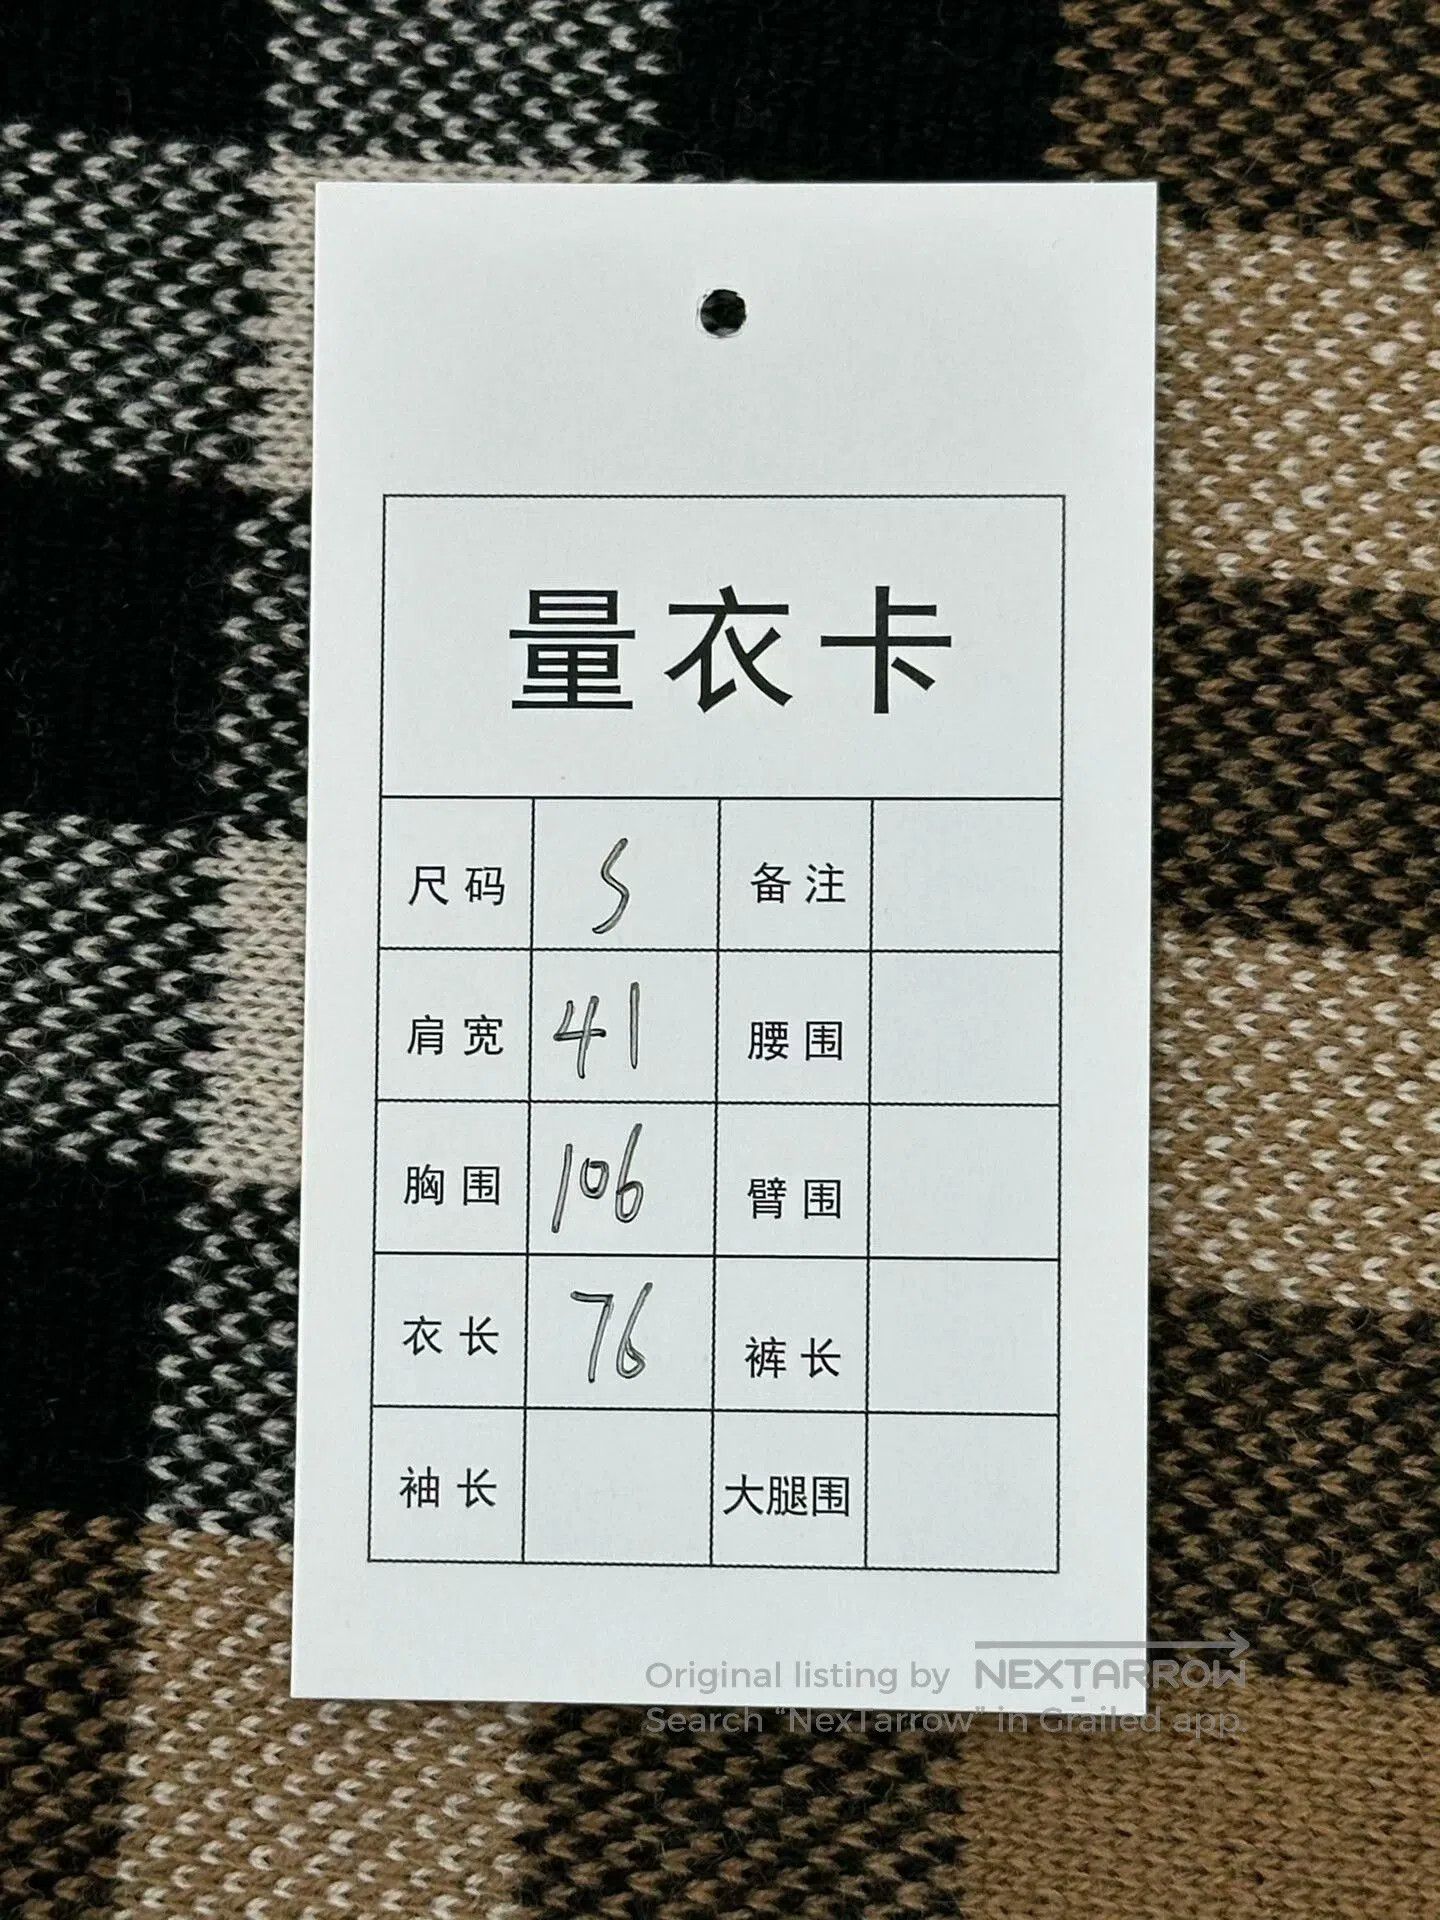 量衣卡
尺码 S 备注
肩宽 41 腰围
胸围 106 臂围
衣长 76 裤长
袖长 大腿围
Original listing by NEXTARROW
Search “NexTarrow” in Grailed app.